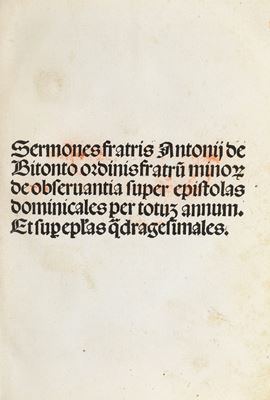 Sermones fratris Antonij de
Bitonto ordinis fratrū minoꝝ
de obseruantia super epistolas
dominicales per totuꝫ annum.
Et suꝑ ep̄las q̄dragesimales.